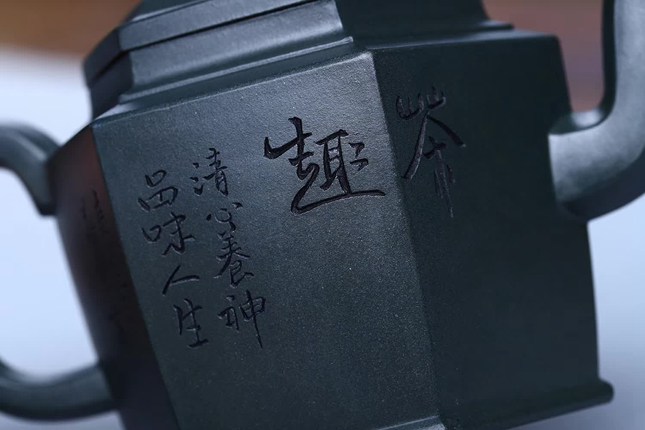 茶趣
清心養神
品味人生